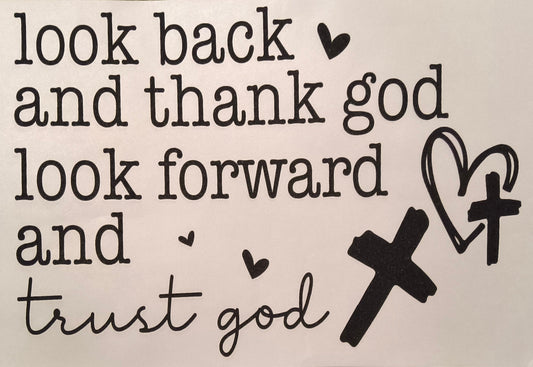 look back
and thank god
look forward
and
trust god